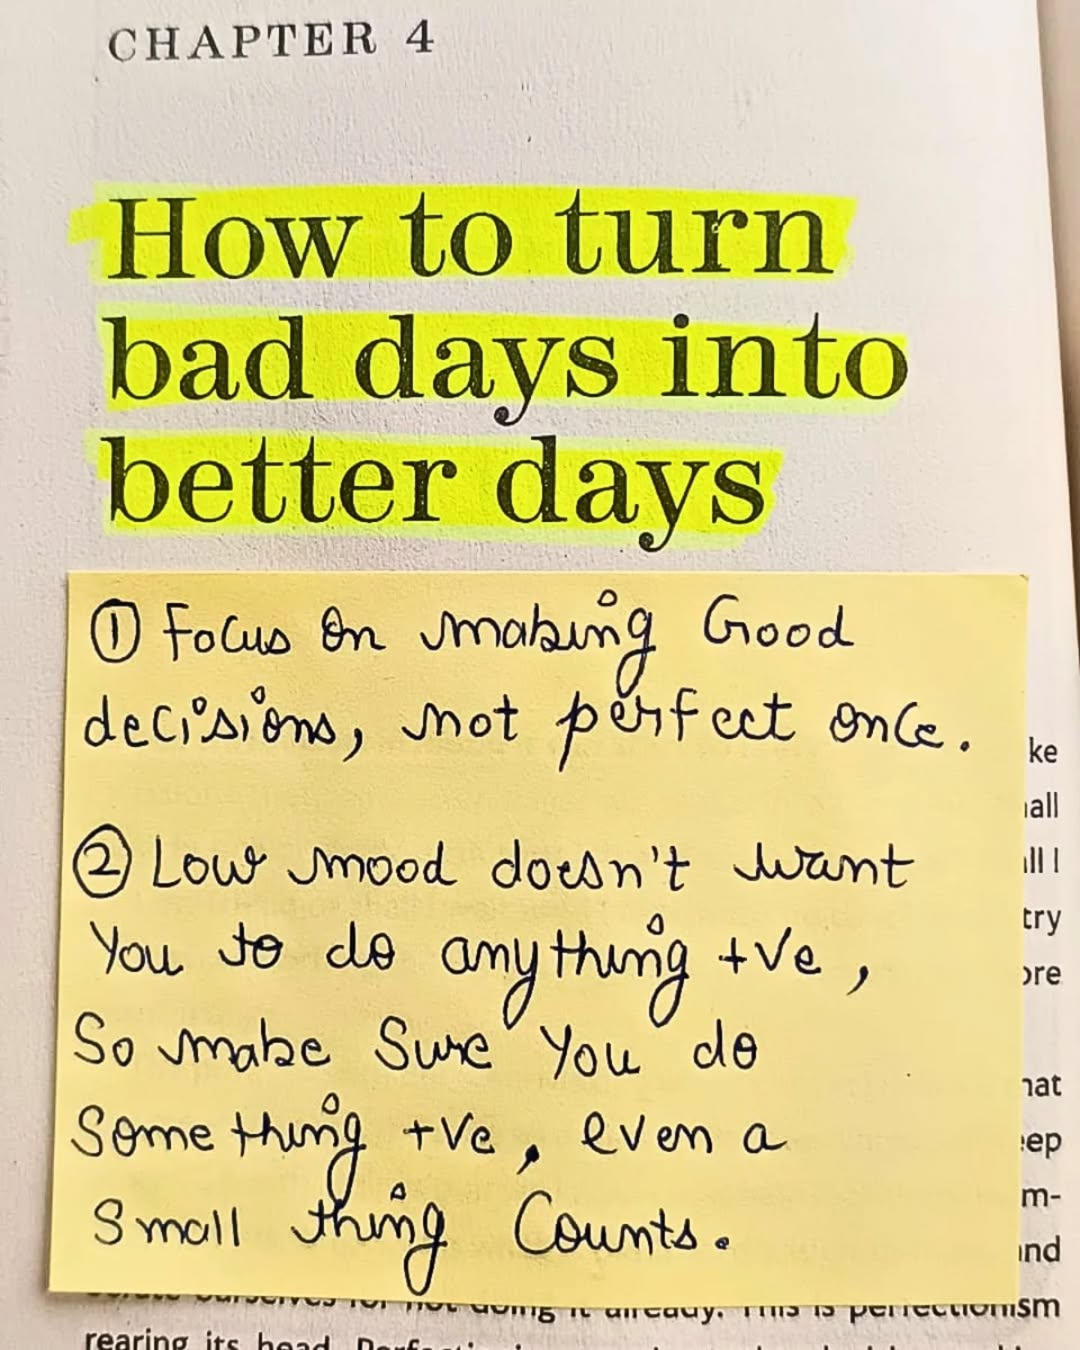 CHAPTER 4
How to turn
bad days into
better days
① Focus on making Good
decisions, not perfect once.
② Low mood doesn't want
You to do anything +ve,
So make Sure You do
Something +ve, even a
Small thing Counts.
ke
all
ll I
try
ore
hat
eep
m-
and
ourselves for not doing it already. This is perfectionism
rearing its head.